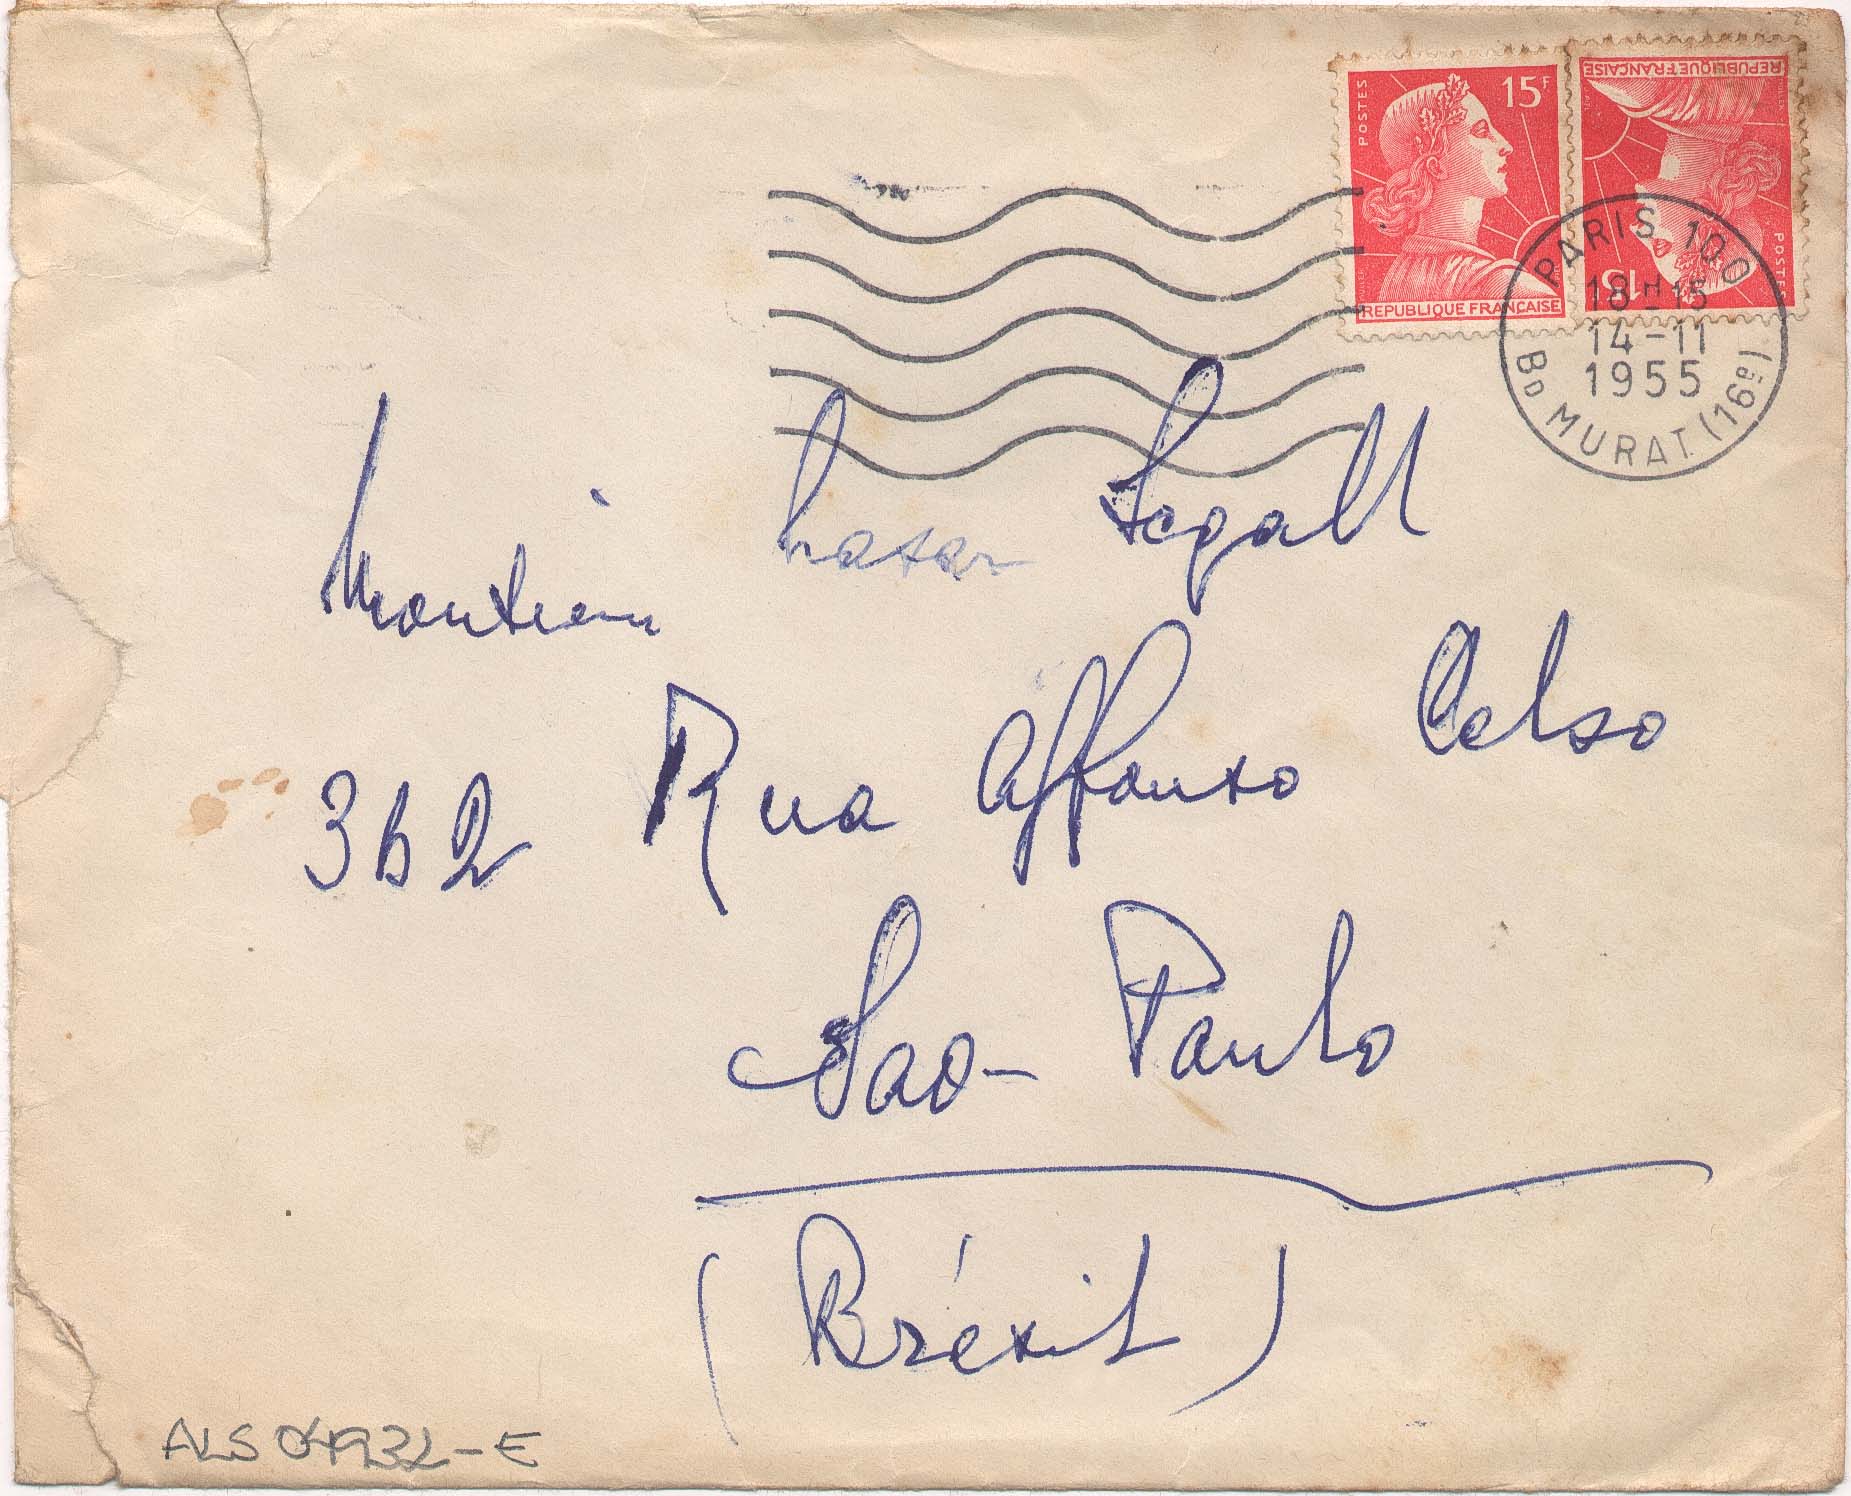 15F
POSTES
REPUBLIQUE FRANÇAISE
REPUBLIQUE FRANÇAISE
POSTES
15F
PARIS 100
18H15
14-11
1955
BD MURAT (16e)
Monsieur Lasar Segall
362 Rua Affonso Celso
Sao-Paulo
(Brésil)
ALS 04932-E